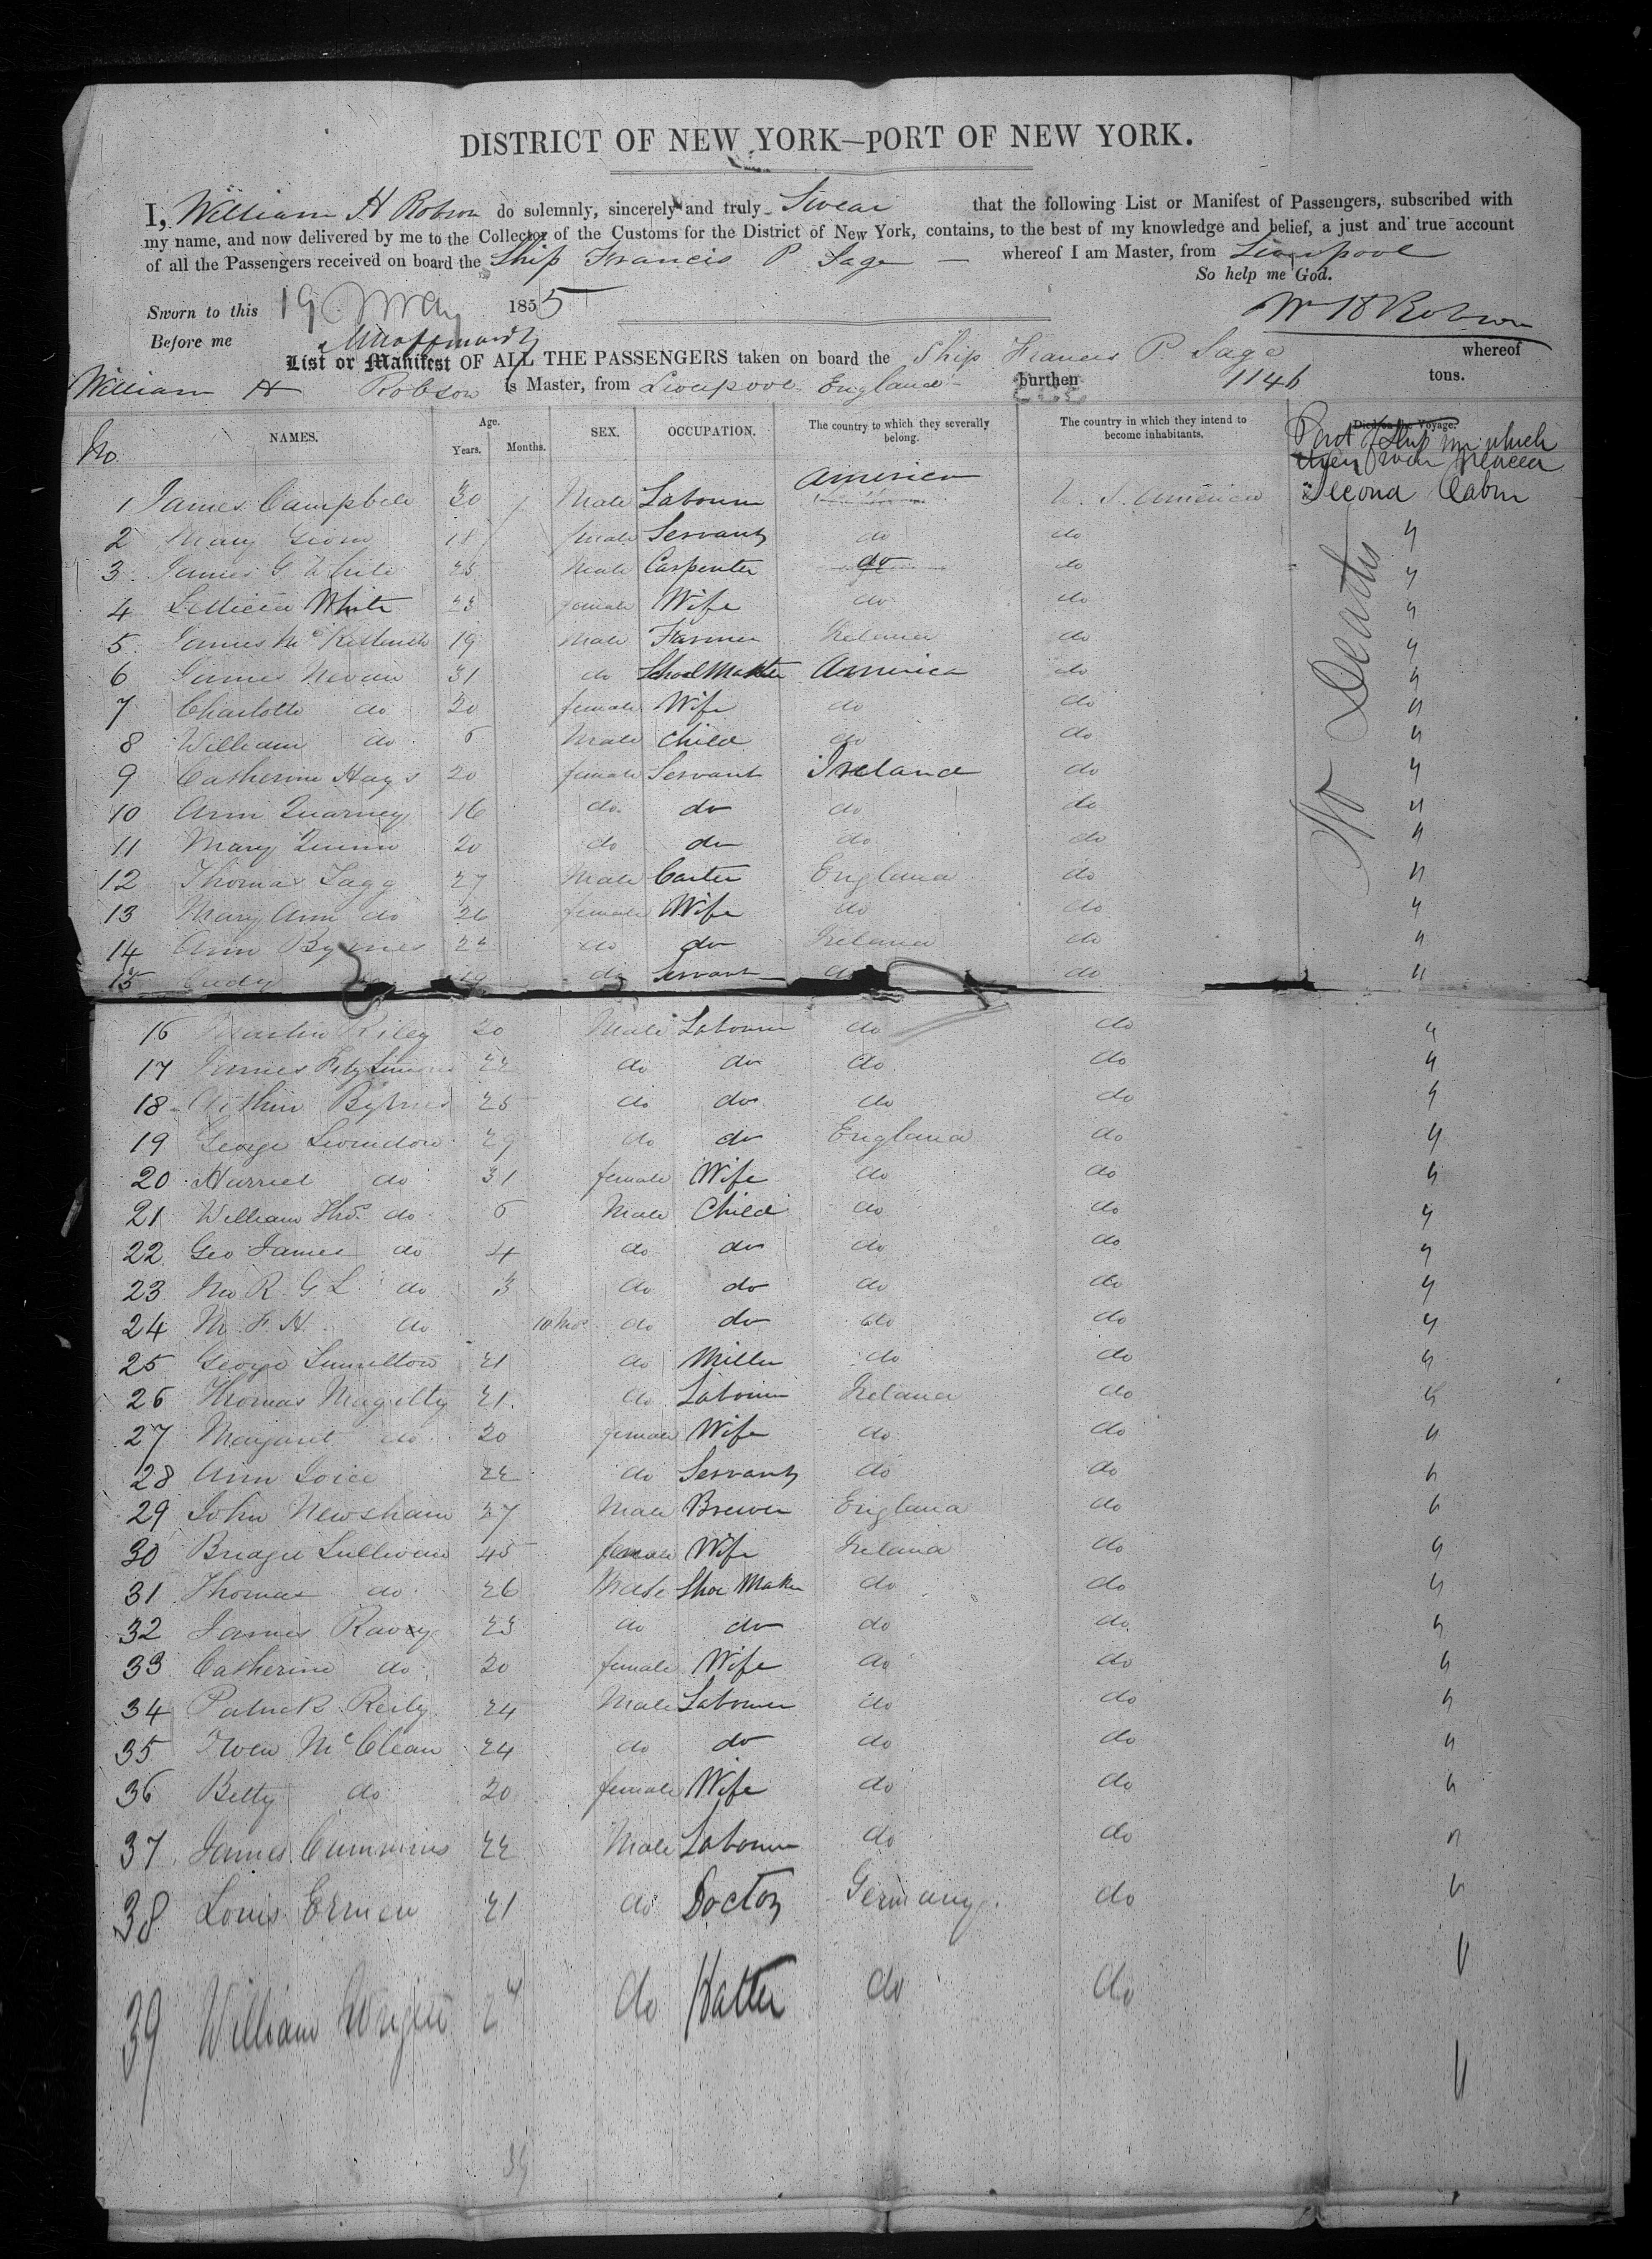 DISTRICT OF NEW YORK—PORT OF NEW YORK.
I, William H Robson do solemnly, sincerely and truly Swear that the following List or Manifest of Passengers, subscribed with
my name, and now delivered by me to the Collector of the Customs for the District of New York, contains, to the best of my knowledge and belief, a just and true account
of all the Passengers received on board the Ship Francis P Sage — whereof I am Master, from Liverpool
So help me God.
Sworn to this 19 May 1855
Wm H Robson
Before me
List or Manifest OF ALL THE PASSENGERS taken on board the Ship Francis P. Sage whereof
William H Robson is Master, from Liverpool England burthen 1146 tons.
No. NAMES. Age. Years. Months. SEX. OCCUPATION. The country to which they severally belong. The country in which they intend to become inhabitants. Died on the Voyage.
Part of Ship in which
they were placed
1 James Campbell 30 Male Labourer America U. S. America Second Cabin
2 Mary 18 female Servant do do "
3 James G White 25 Male Carpenter do do "
4 Letticia White 23 female Wife do do "
5 James 19 Male Farmer Ireland do "
6 James Nevin 31 do Shoe Maker America do "
7 Charlotte do 30 female Wife do do "
8 William do 6 Male Child do do "
9 Catherine Hays 20 female Servant Ireland do "
10 Ann Quarney 16 do do do do "
11 Mary Quinn 20 do do do do "
12 Thomas Tagg 27 Male Carter England do "
13 Mary Ann do 26 female Wife do do "
14 Ann Byrnes 22 do do Ireland do "
15 Judy 19 do Servant do do "
No Deaths
16 Martin Riley 20 Male Labourer do do "
17 James FitzSimons 22 do do do do "
18 Arthur Byrnes 25 do do do do "
19 George 29 do do England do "
20 Harriet do 31 female Wife do do "
21 William Thos. do 6 Male Child do do "
22 Geo James do 4 do do do do "
23 R. G L do 3 do do do do "
24 M. F. H. do 10 Mos do do do do "
25 George 21 do Miller do do "
26 Thomas Magilty 21 do Labourer Ireland do "
27 Margaret do 20 female Wife do do "
28 Ann Joice 22 do Servant do do "
29 John Newsham 37 Male Brewer England do "
30 Bridget Sullivan 45 female Wife Ireland do "
31 Thomas do 26 Male Shoe Maker do do "
32 James 23 do do do do "
33 Catherine do 20 female Wife do do "
34 Patrick Reily 24 Male Labourer do do "
35 Owen McClean 24 do do do do "
36 Betty do 20 female Wife do do "
37 James Cummins 22 Male Labourer do do "
38 Louis Ermen 21 do Doctor Germany do "
39 William Wright 27 do Hatter do do "
39